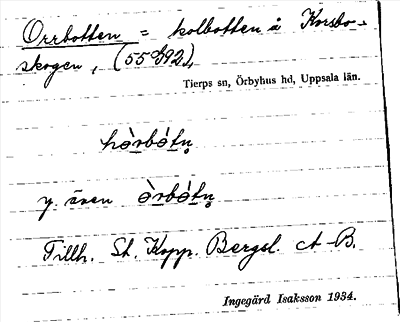 Orrbotten = kolbotten å Korsbo-
skogen, (55 G92),
Tierps sn, Örbyhus hd, Uppsala län.
hòrbòtn̥
y. även òrbòtn̥
Tillh. St. Kopp. Bergsl. A-B.
Ingegärd Isaksson 1934.